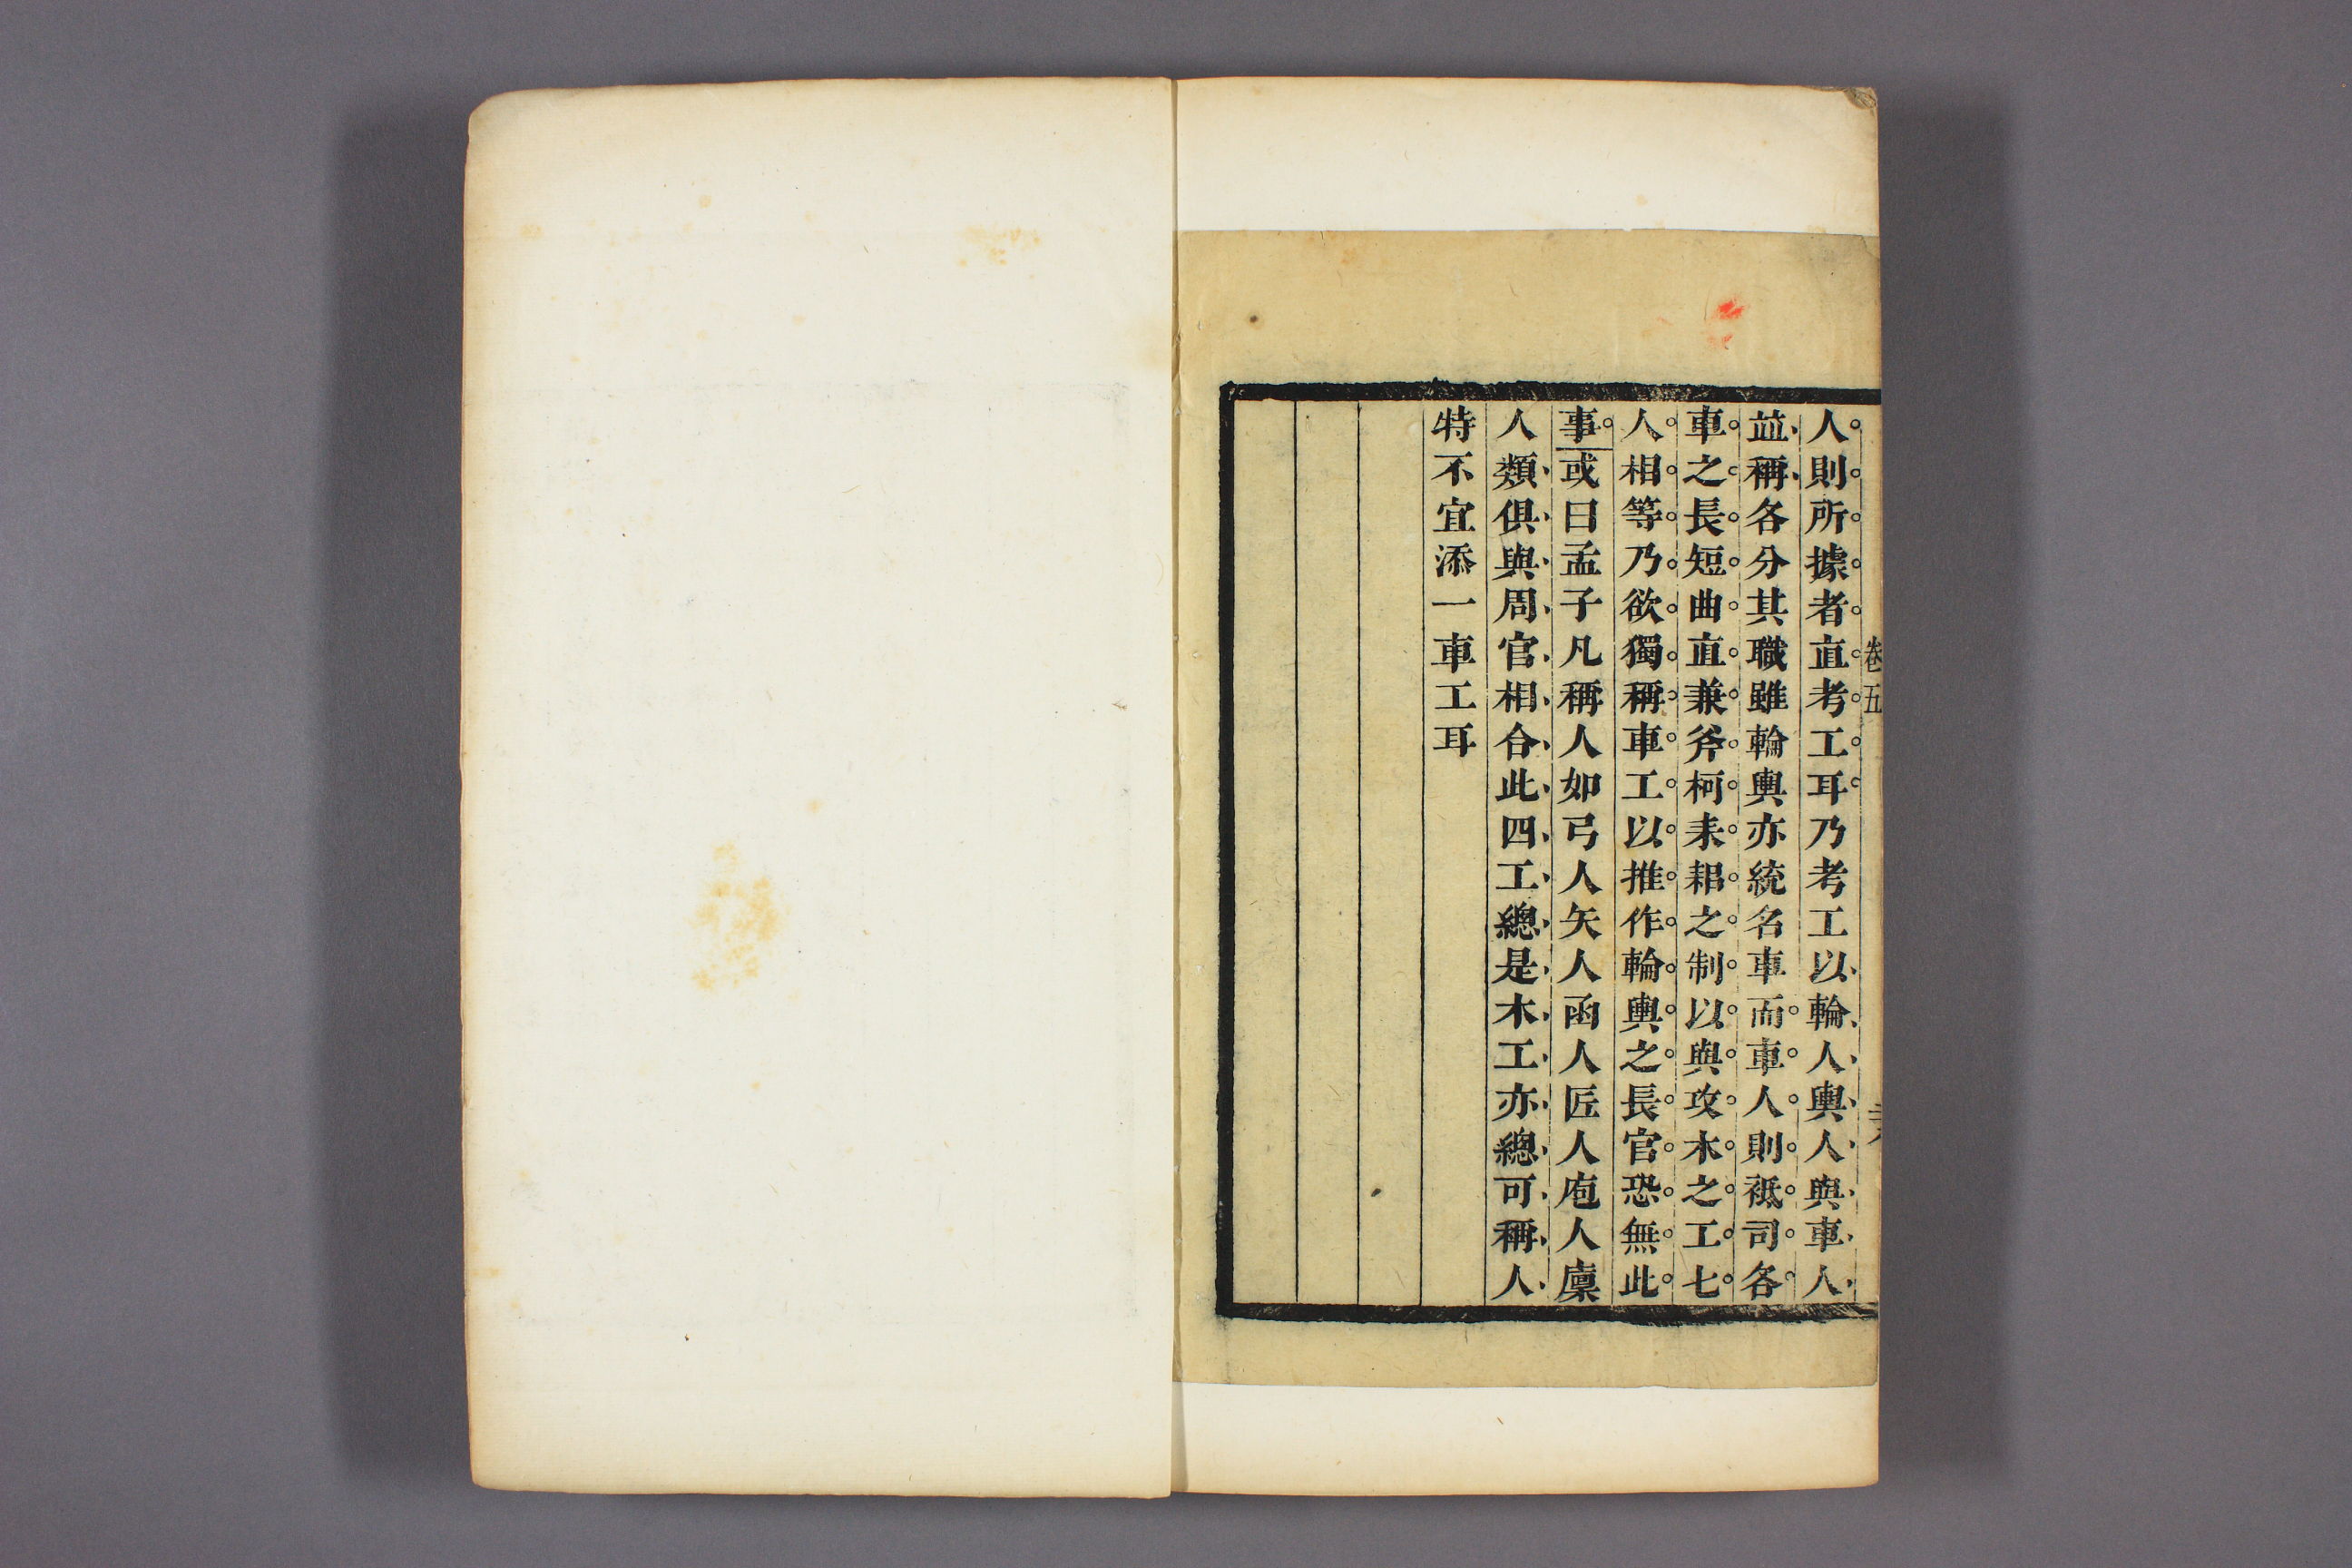 卷五
人則所據者直考工耳乃考工以輪人輿人與車人
並稱各分其職雖輪輿亦統名車而車人則祗司各
車之長短曲直兼斧柯耒耜之制以與攻木之工七
人相等乃欲獨稱車工以推作輪輿之長官恐無此
事或曰孟子凡稱人如弓人矢人函人匠人庖人廩
人類俱與周官相合此四工總是木工亦總可稱人
特不宜添一車工耳